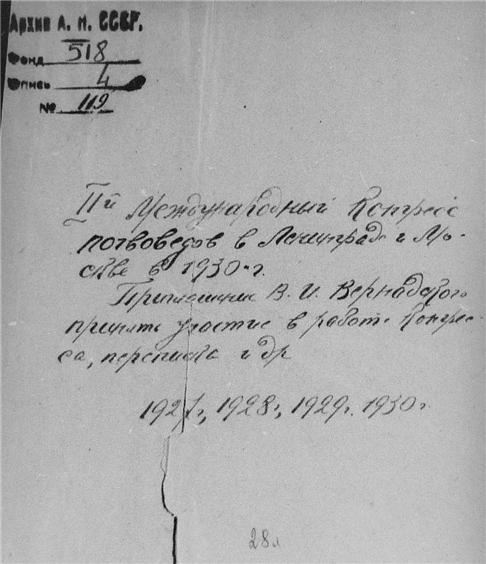 Архив А. Н. СССР.
Фонд 518
Опись 4
№ 119
IIй Международный Конгресс
почвоведов в Ленинграде и Мо-
скве в 1930 г.
Приглашение В. И. Вернадского
принять участие в работе Конгрес-
са, переписка и др
1927г, 1928г, 1929г. 1930г.
28л